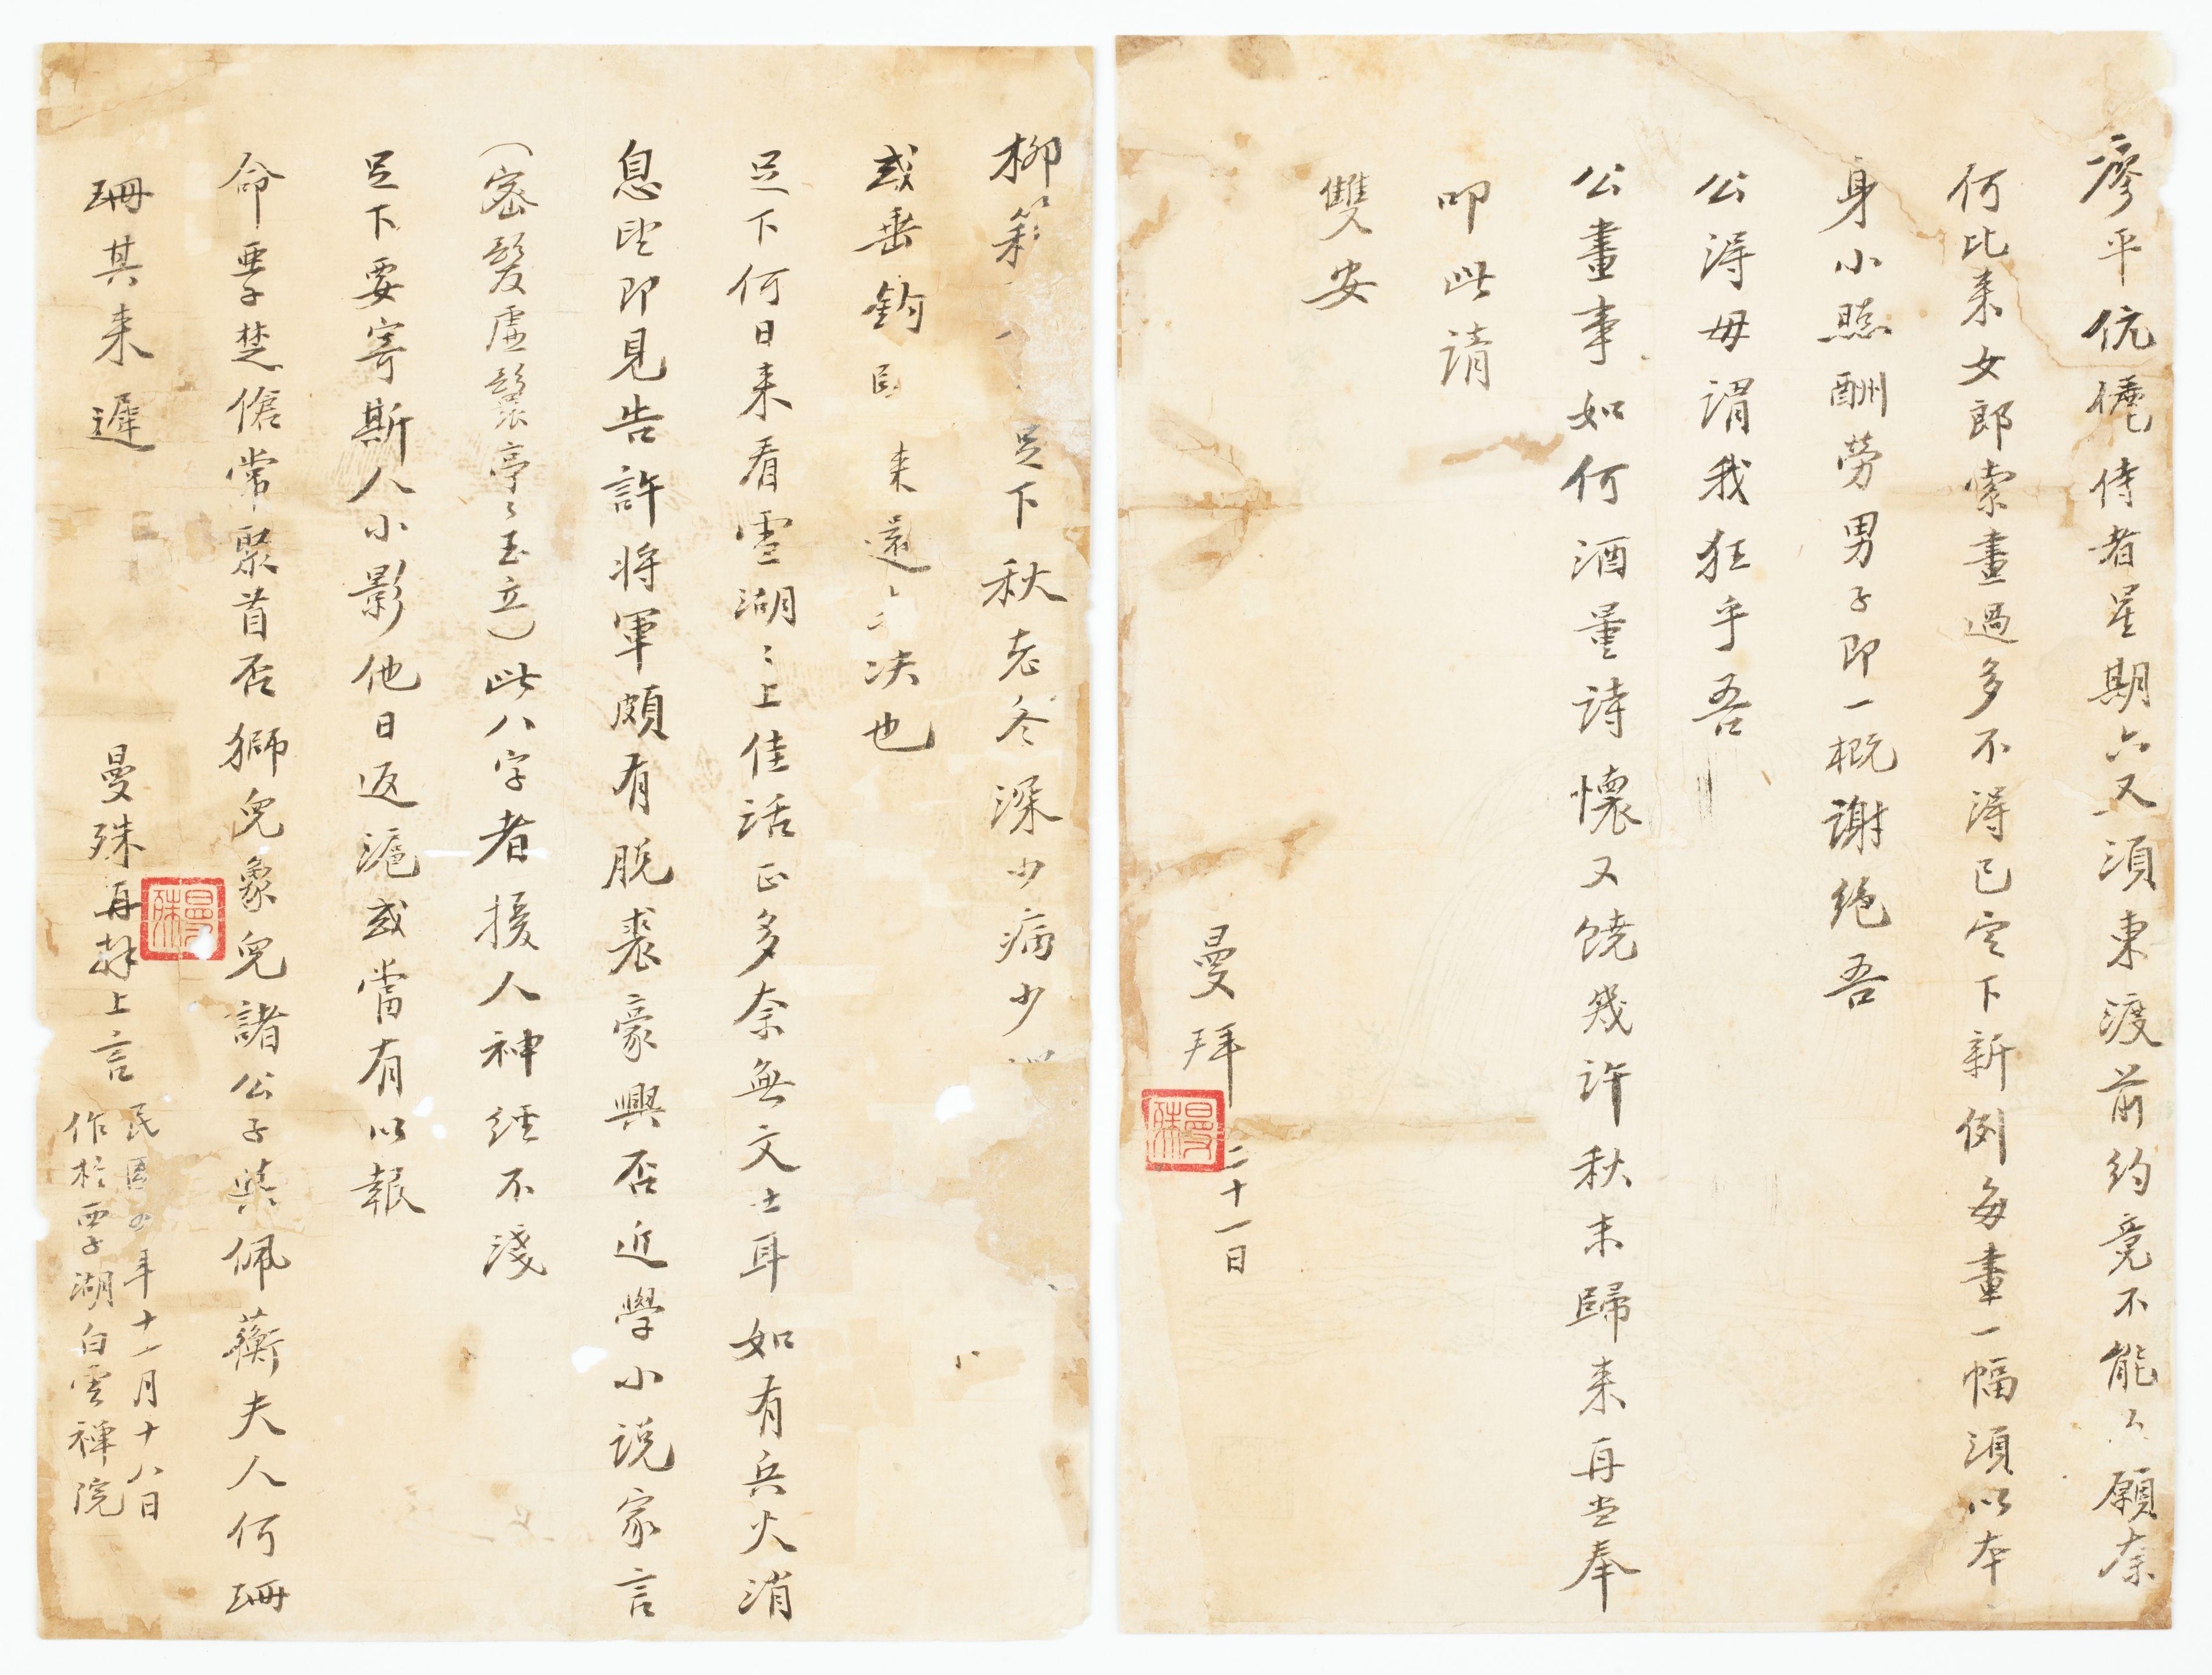 瘳平伉儷侍者星期六又須東渡前約竟不能願奈
何比來女郎索畫過多不得已定下新例每畫一幅須以本
身小照酬勞男子即一概謝絕吾
公得毋謂我狂乎吾
公畫事如何酒量詩懷又饒幾許秋末歸來再當奉
叩此請
雙安
曼拜
二十一日
曼殊
柳 足下秋老冬深少病少
或垂鈞 來還 決也
足下何日來看雪湖〻上佳話正多奈無文士耳如有兵火消
息望即見告許將軍頗有脫裘豪興否近學小说家言
(密髮虛鬟亭〻玉立)此八字者援人神經不淺
足下要寄斯人小影他日返滬或當有以報
命要子楚傖常聚首否獅兒象兒諸公子與佩蘅夫人何珊
珊其來遲
曼殊再拜上言
民國四年十一月十八日
作於西子湖白雲禪院
曼殊